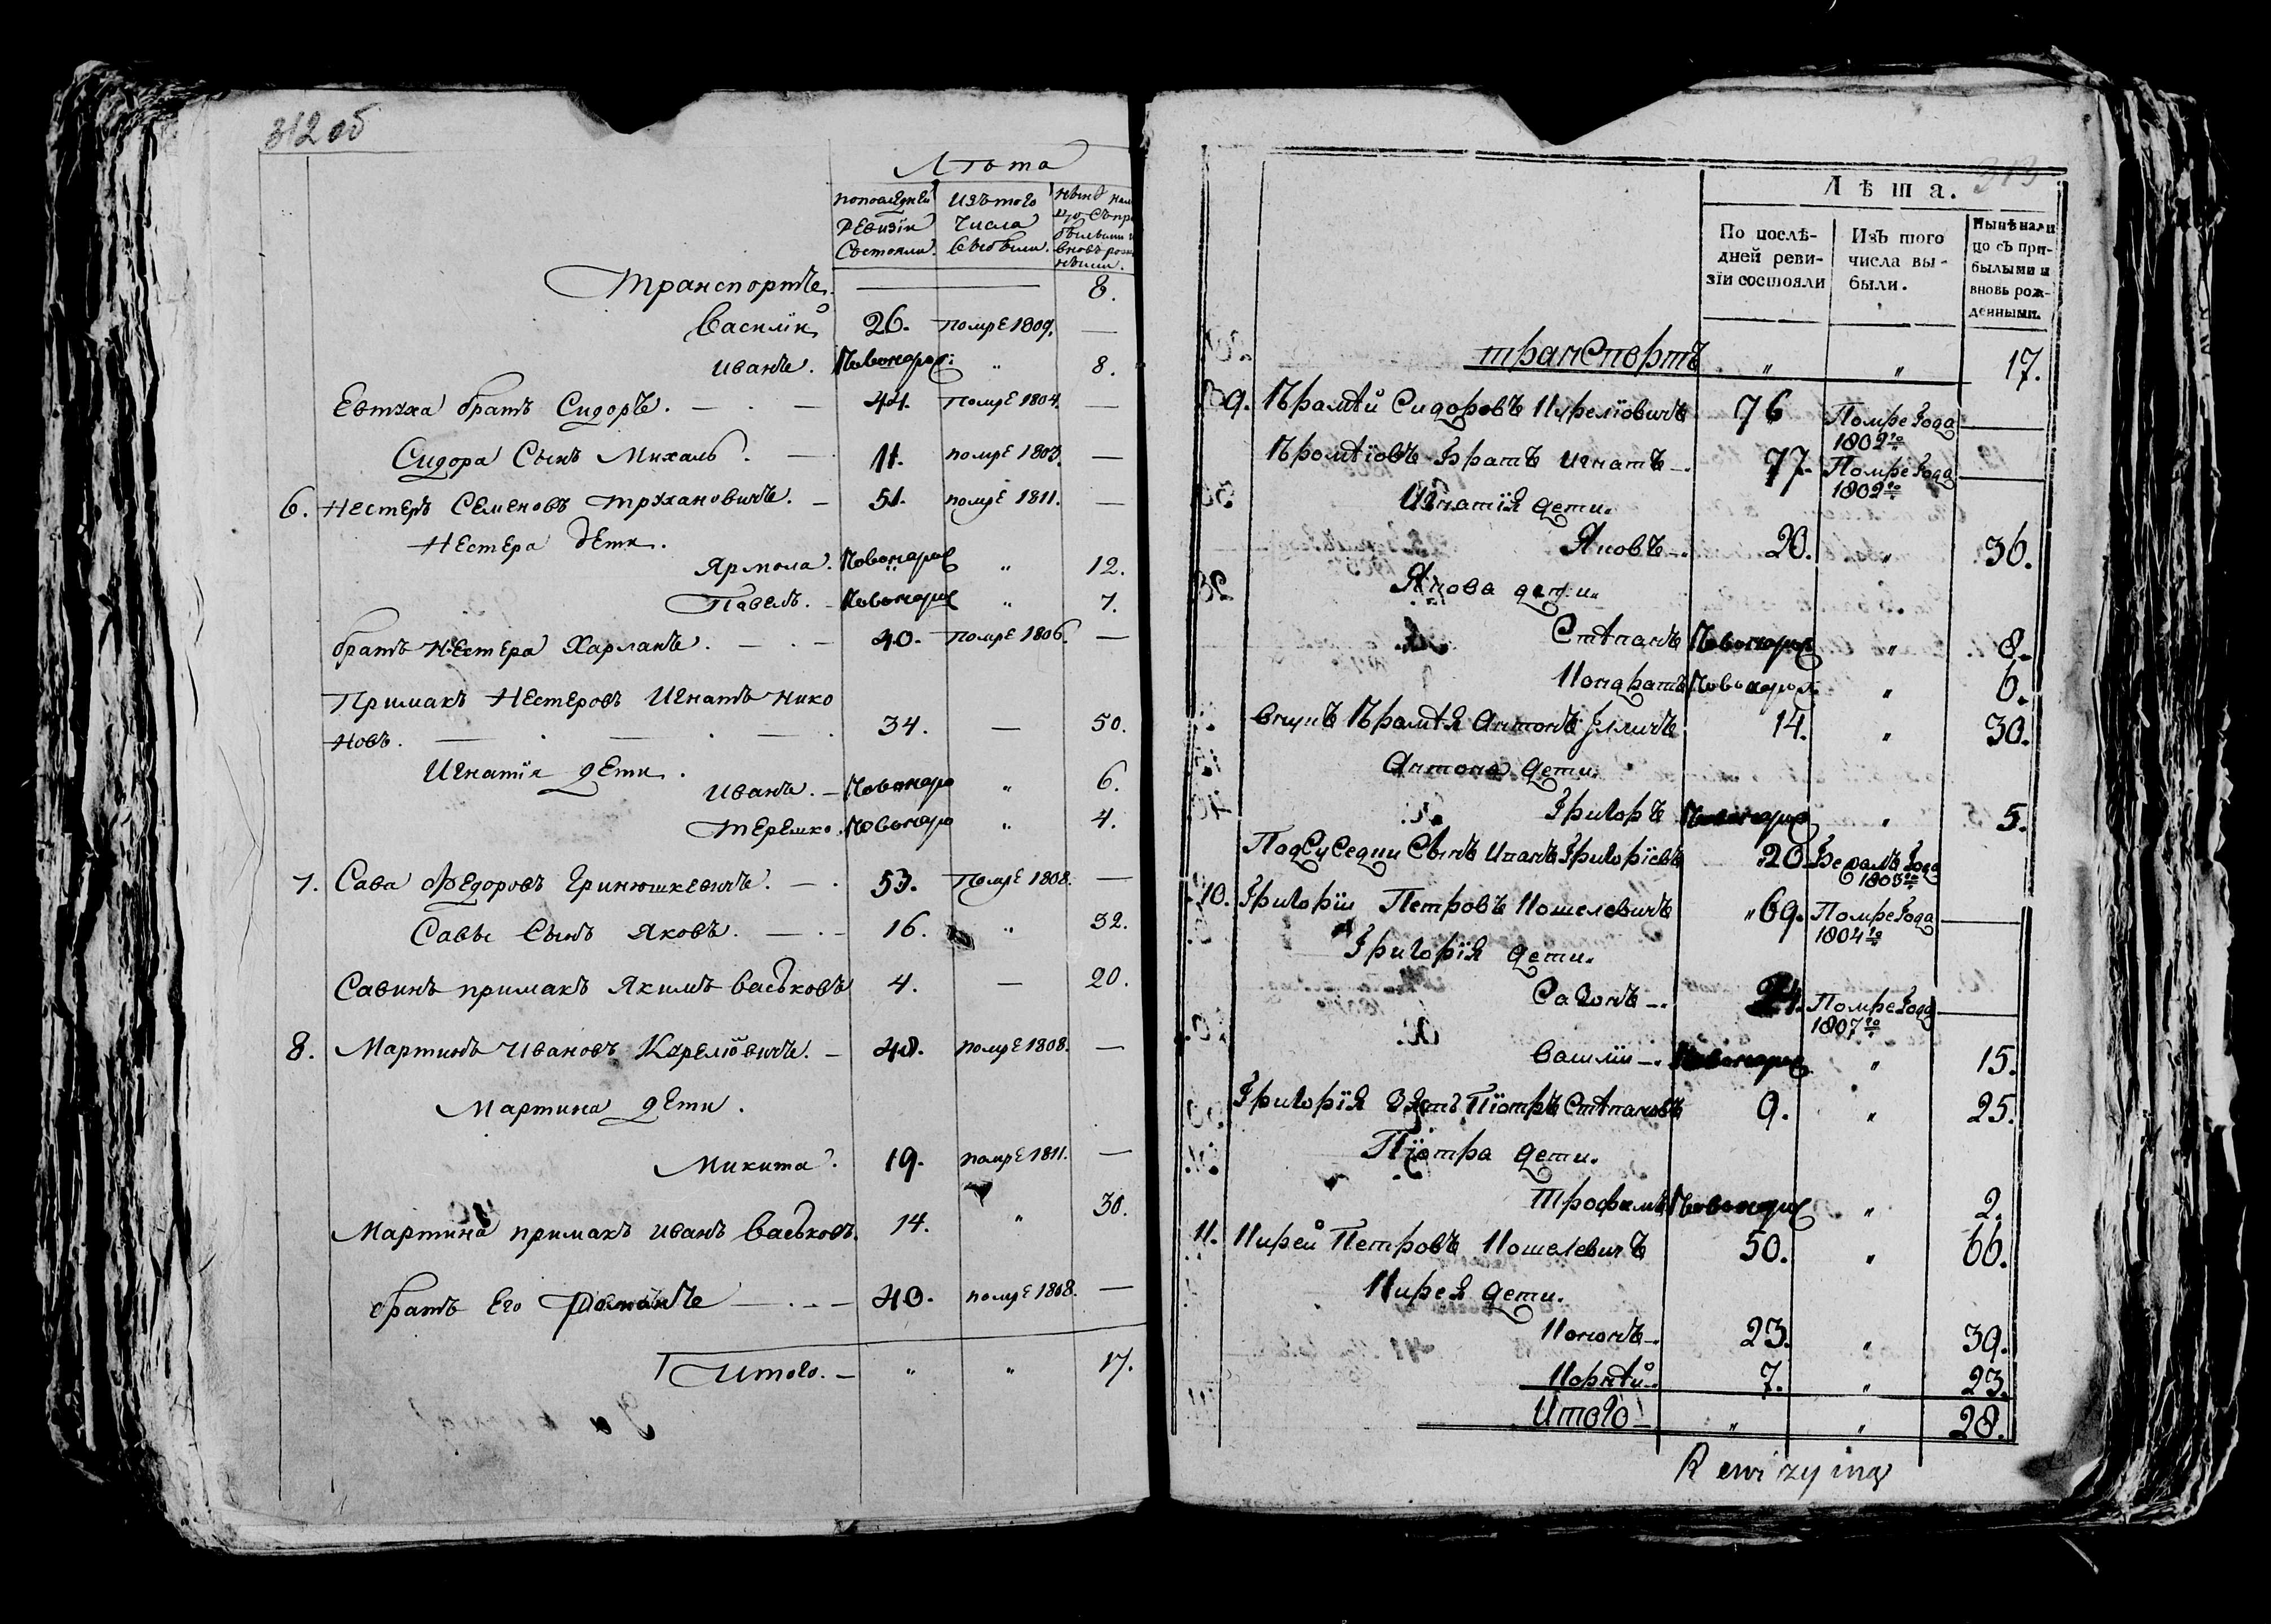 312 об
Лѣта
попоследней ревизiи состояли.
изъ того числа выбыли.
транспортъ. 8.
Василiй 26. помре 1809. —
иванъ. Новонарож: „ 8.
Евтуха братъ Сидоръ. 44. помре 1804. —
Сидора Сынъ Михалъ. 11. помре 1803. —
6. Нестеръ Семеновъ трухановичъ. 51. помре 1811. —
Нестера дети.
Ярмола. Новонарож „ 12.
Павелъ. Новонарож „ 7.
братъ Нестера Харланъ. 40. помре 1806. —
Примакъ Нестеровъ Игнатъ Нико
новъ. 34. — 50.
Игнатiя дети.
иванъ. Новонаро „ 6.
терешко. Новонаро „ 4.
7. Сава Федоровъ Гринюшкевичъ. 53. помре 1808. —
Савы Сынъ Яковъ. 16. „ 32.
Савинъ примакъ Якимъ васьковъ 4. — 20.
8. Мартинъ Ивановъ Курелiовичъ. 48. помре 1808. —
Мартина дети.
Микита. 19. помре 1811. —
Мартина примакъ иванъ васьковъ. 14. „ 30.
братъ Его Романъ 40. помре 1808. —
Итого. „ „ 17.
313
Лѣта.
По послѣдней ревизiи состояли
Изъ того числа выбыли.
Нынѣ налицо съ прибылыми и вновь рожденными.
транспортъ „ „ 17.
9. Сидоровъ Курелiовичъ 76 Помре года 1802го —
братъ игнатъ 77. Помре года 1802го —
Игнатiя дети.
Яковъ 20. „ 36.
Якова дети.
Степанъ Новонарож „ 8.
Кондратъ Новонарож. „ 6.
внукъ Антонъ Илличъ 14. „ 30.
Антона дети.
Григоръ Новонарож „ 5.
Подсуседки Сынъ Григорiевъ 20 Бежалъ года 1803го
10. Григорiй Петровъ Кошелевичъ „69. Помре года 1804го —
Григорiя дети.
Сазонъ 24. Помре года 1807го —
Василiй Новонарож „ 15.
Григорiя Зять Пiотръ Степановъ 9. „ 25.
Пiотра дети.
Трофимъ Новонарож „ 2.
11. Кирей Петровъ Кошелевичъ 50. „ 66.
Кирея дети.
Кононъ 23. „ 39.
Корнѣй 7. „ 23.
Итого „ „ 28.